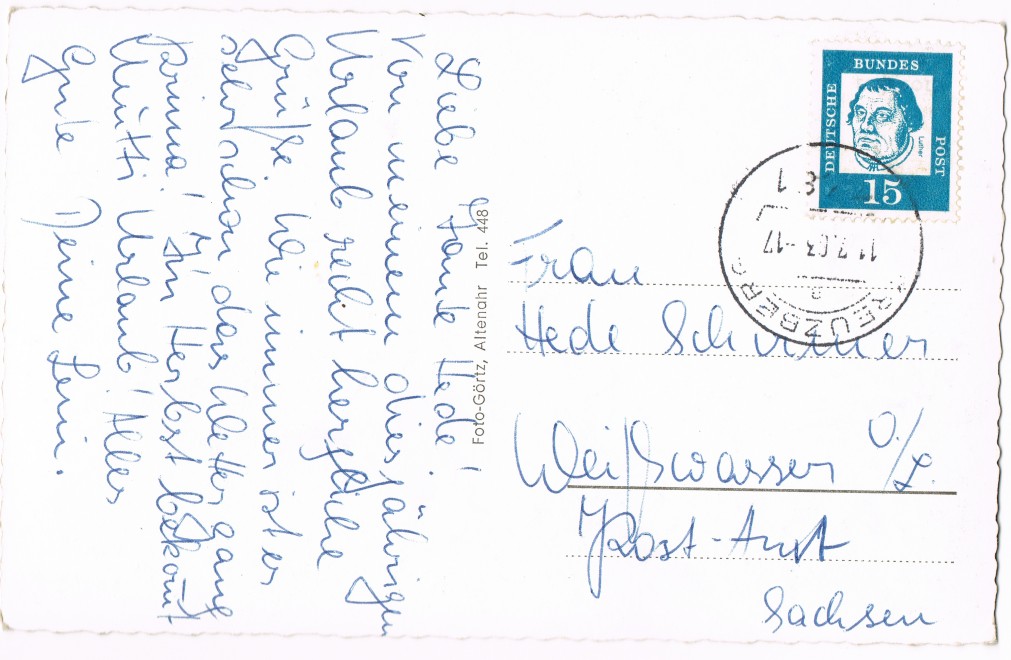 Liebe Tante Hede!
Von meinem diesjährigen
Urlaub recht herzliche
Grüße. Wie immer ist es
sehr schön das Wetter ganz
prima! Im Herbst bekom̄t
Mutti Urlaub! Alles
Gute Deine Leni.
Foto-Görtz, Altenahr Tel. 448
DEUTSCHE BUNDES POST
Luther
15
KREUZBERG
11.7.63.-17
a
Frau
Hede Schirmer
Weißwasser O./L.
Post-Amt
Sachsen